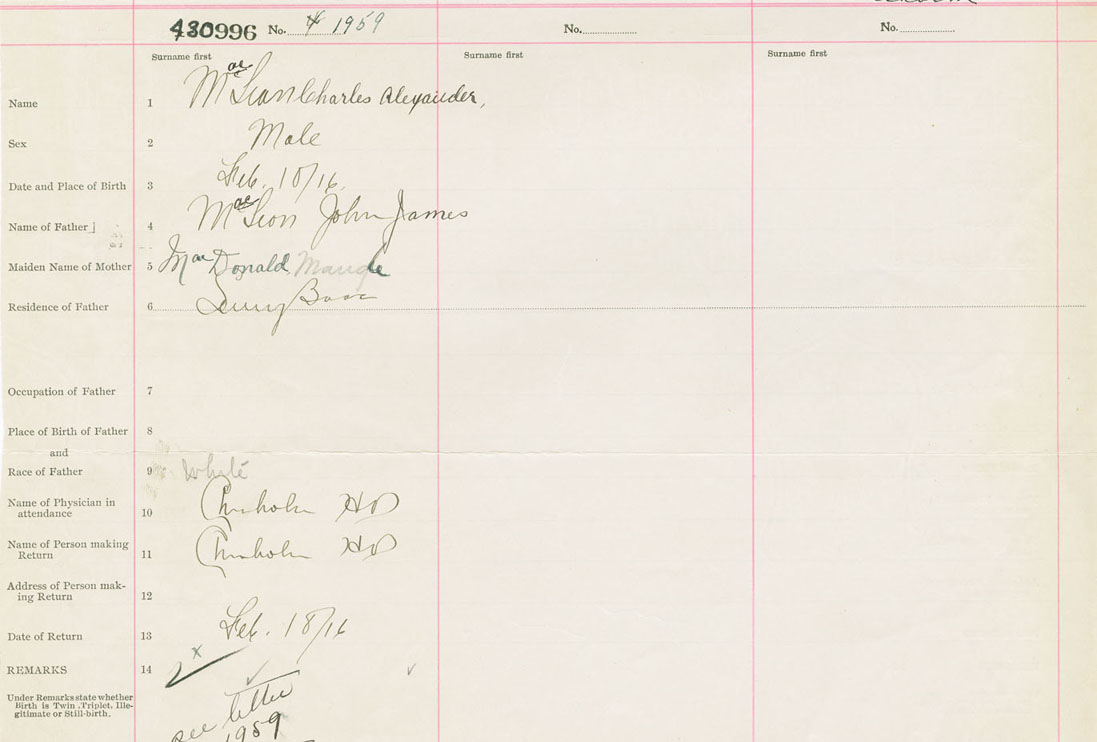 430996 No. 4 1959 No. No.
Surname first Surname first Surname first
Name 1 Charles Alexander,
Sex 2 Male
Date and Place of Birth 3 Feb. 10/16.
Name of Father 4 John James
Maiden Name of Mother 5 MacDonald, Maude
Residence of Father 6
Occupation of Father 7
Place of Birth of Father 8
and
Race of Father 9 white
Name of Physician in
attendance 10 Chisholm HD
Name of Person making
Return 11 Chisholm HD
Address of Person mak-
ing Return 12
Date of Return 13 Feb. 18/16
REMARKS 14 x
Under Remarks state whether
Birth is Twin, Triplet, Ille-
gitimate or Still-birth.
see letter
1959